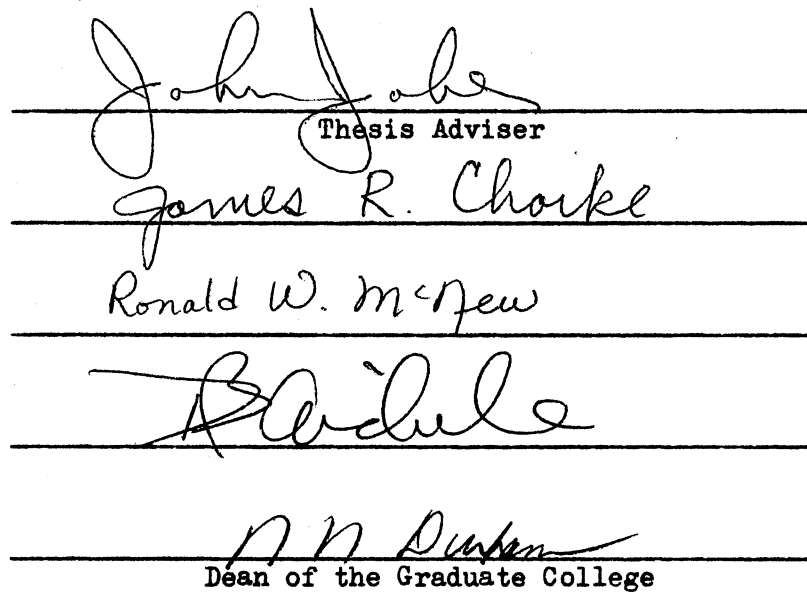 John Jobe
Thesis Adviser
James R. Choike
Ronald W. McNew
N N Durham
Dean of the Graduate College